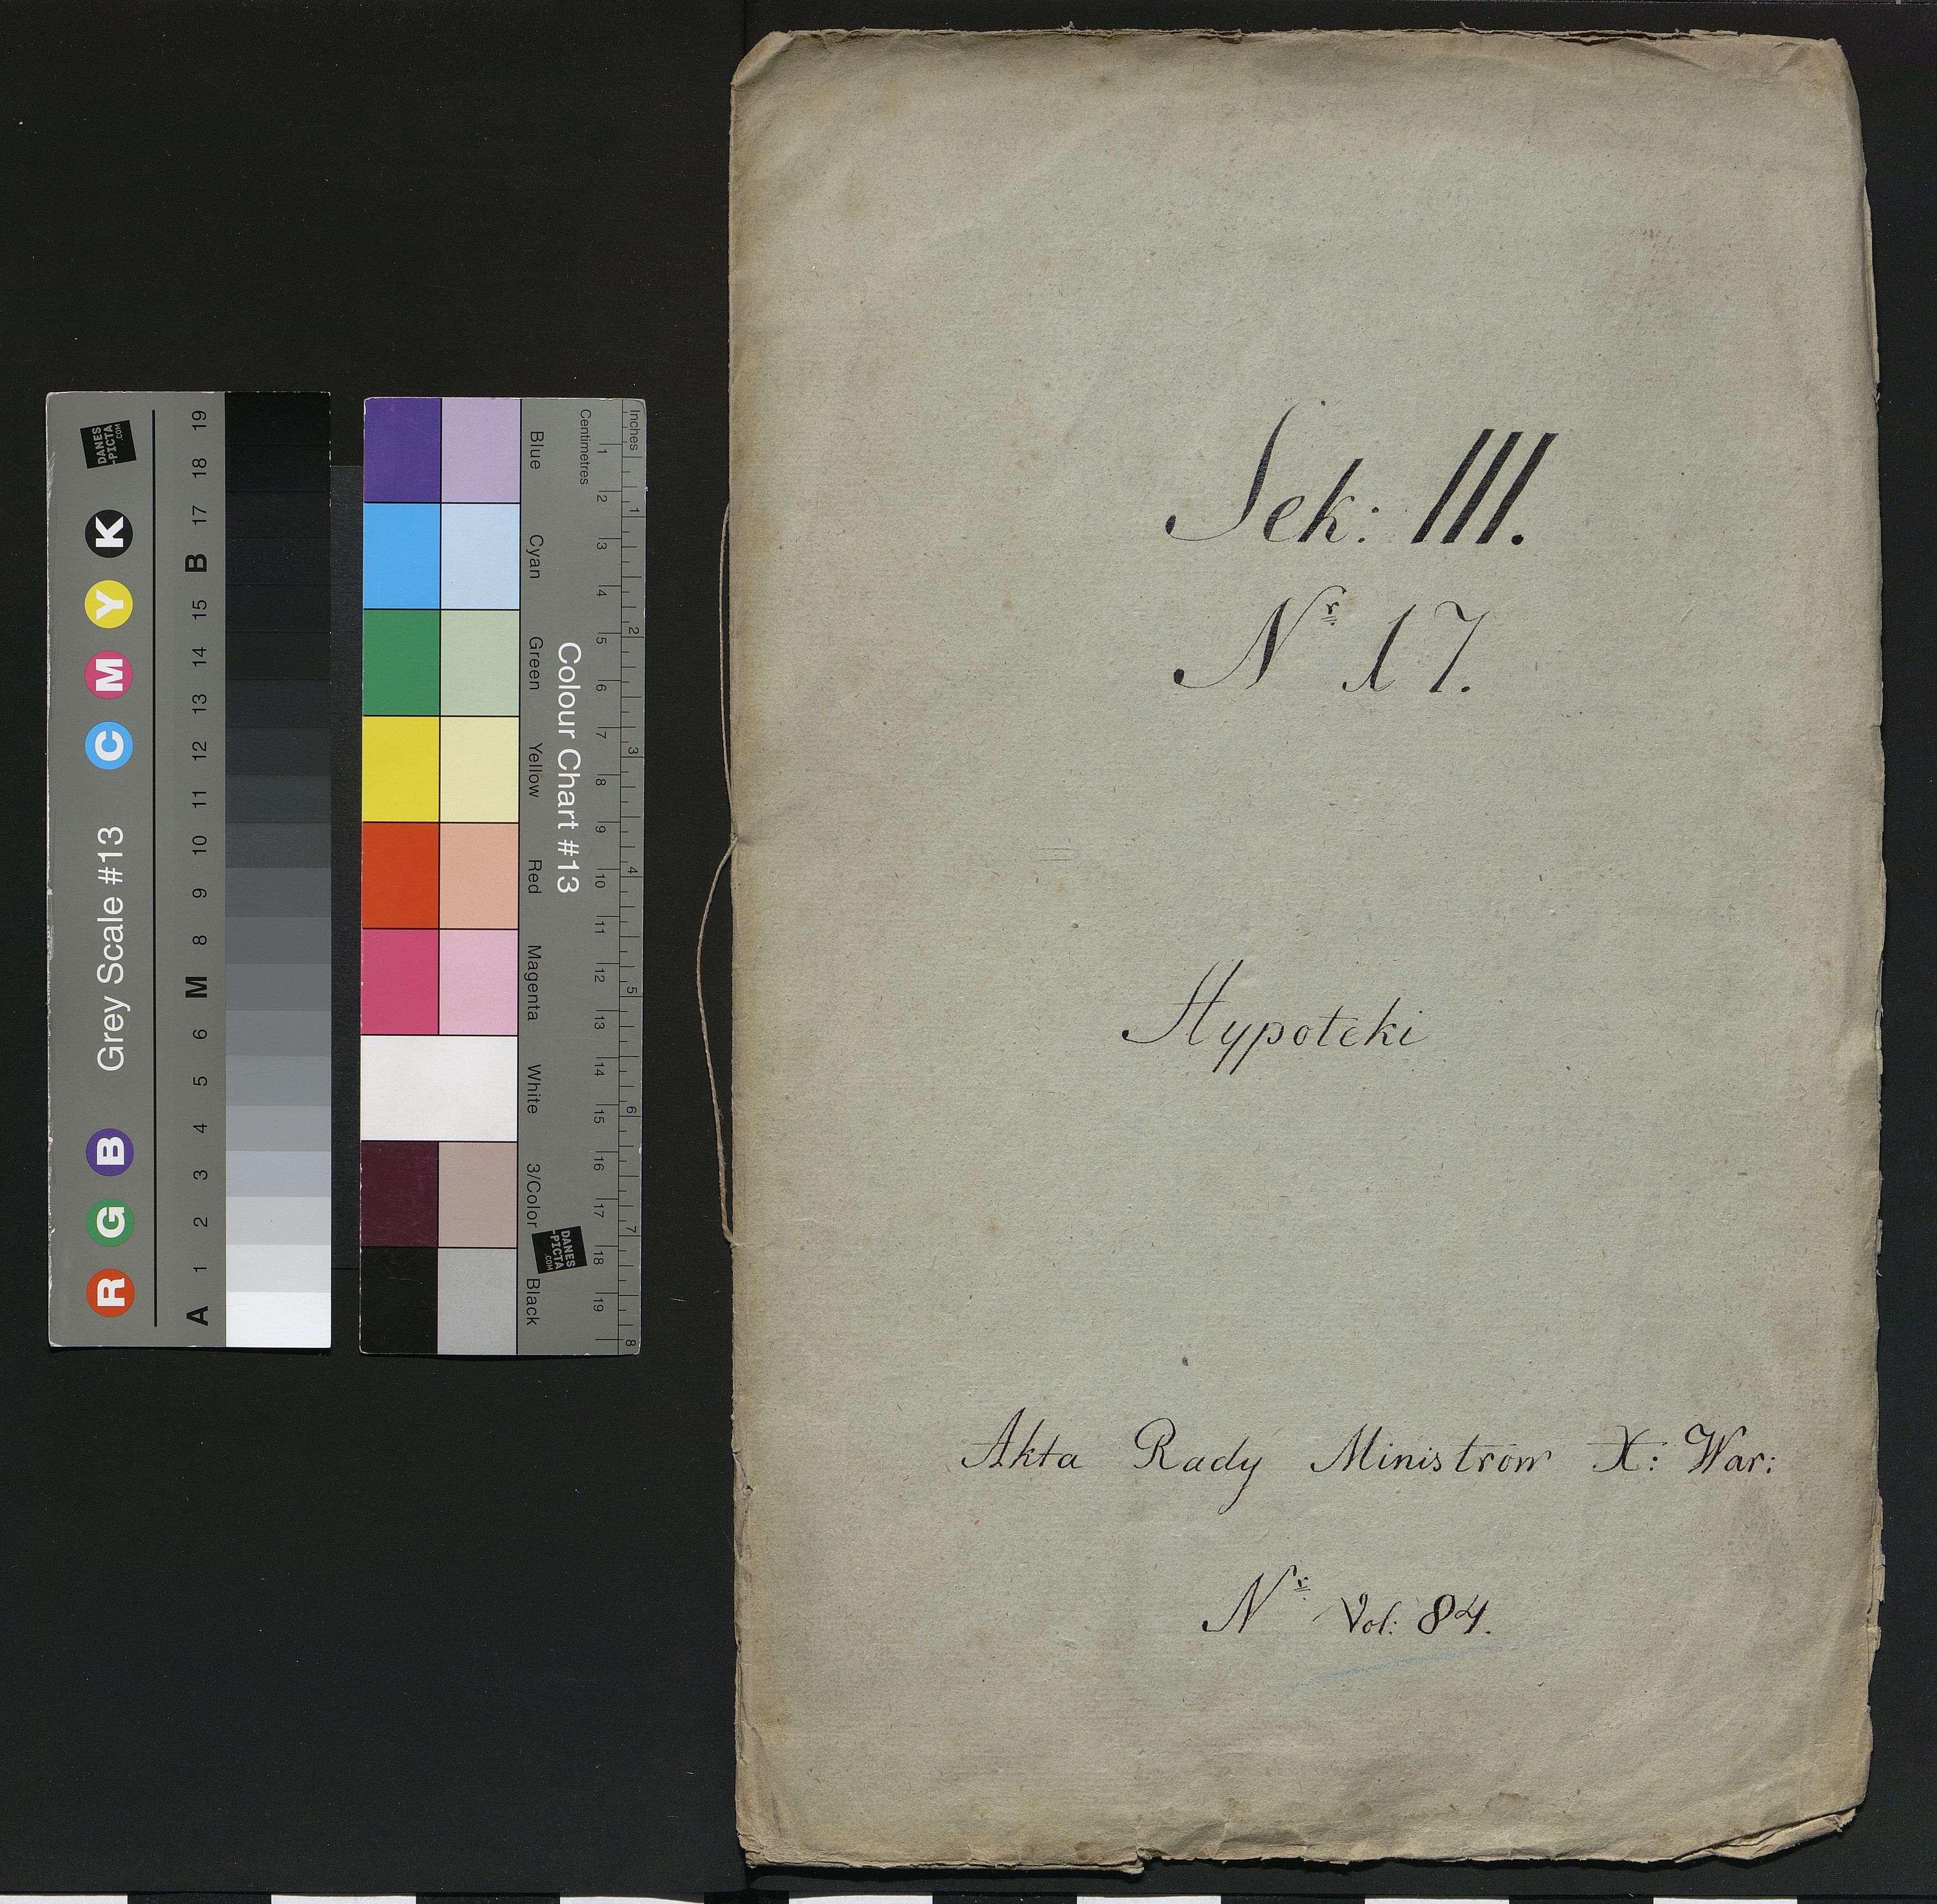 Sek: III.
Nr 17.
Hypoteki
Akta Rady Ministrow X: War:
Nr Vol: 84.
DANES
-PICTA
.COM
R G B Grey Scale #13 C M Y K
A 1 2 3 4 5 6 M 8 9 10 11 12 13 14 15 B 17 18 19
Blue Cyan Green Yellow Red Magenta White 3/Color Black
Colour Chart #13
DANES
-PICTA
.COM
Centimetres 1 2 3 4 5 6 7 8 9 10 11 12 13 14 15 16 17 18 19
Inches 1 2 3 4 5 6 7 8